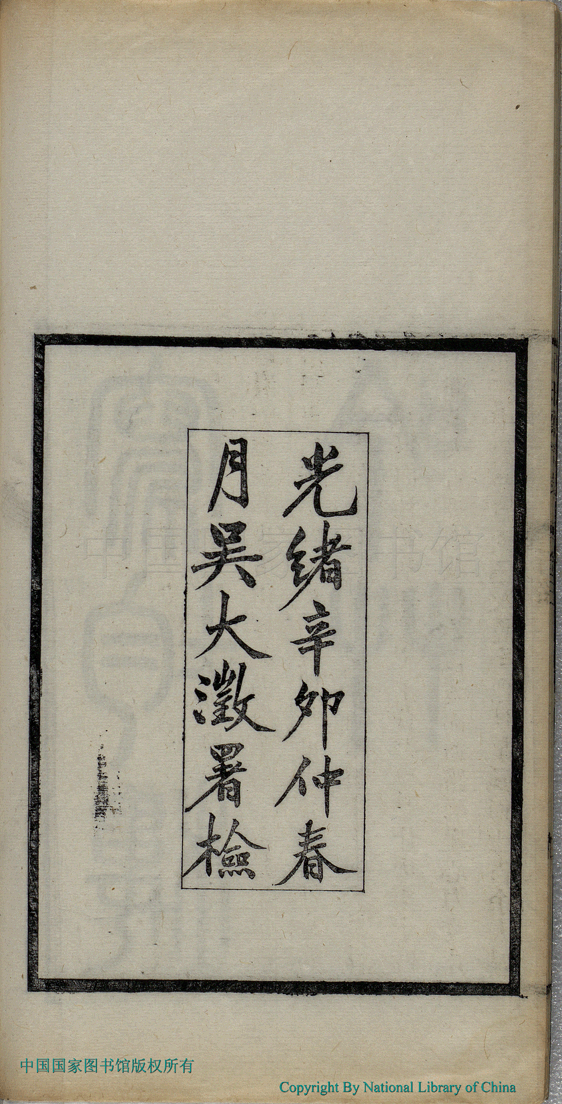 光緒辛卯仲春
月吳大澂署檢
中国国家图书馆版权所有
Copyright By National Library of China